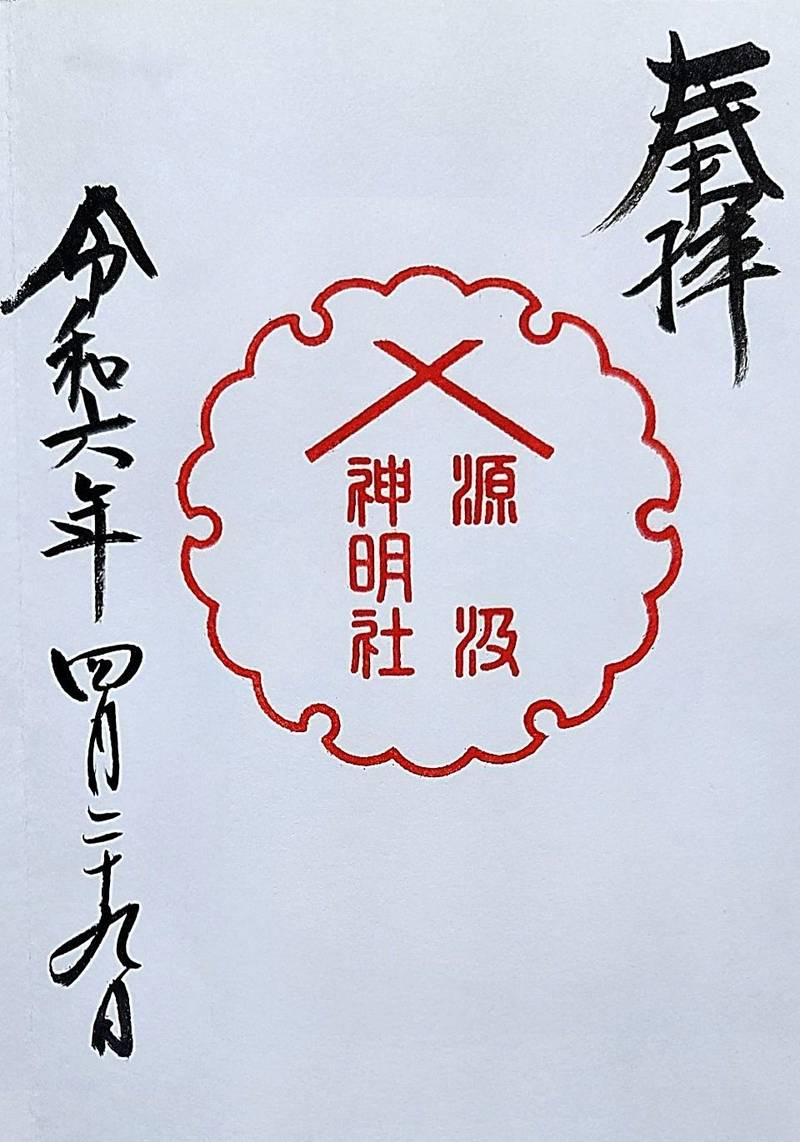 奉拝
源汲
神明社
令和六年四月二十九日